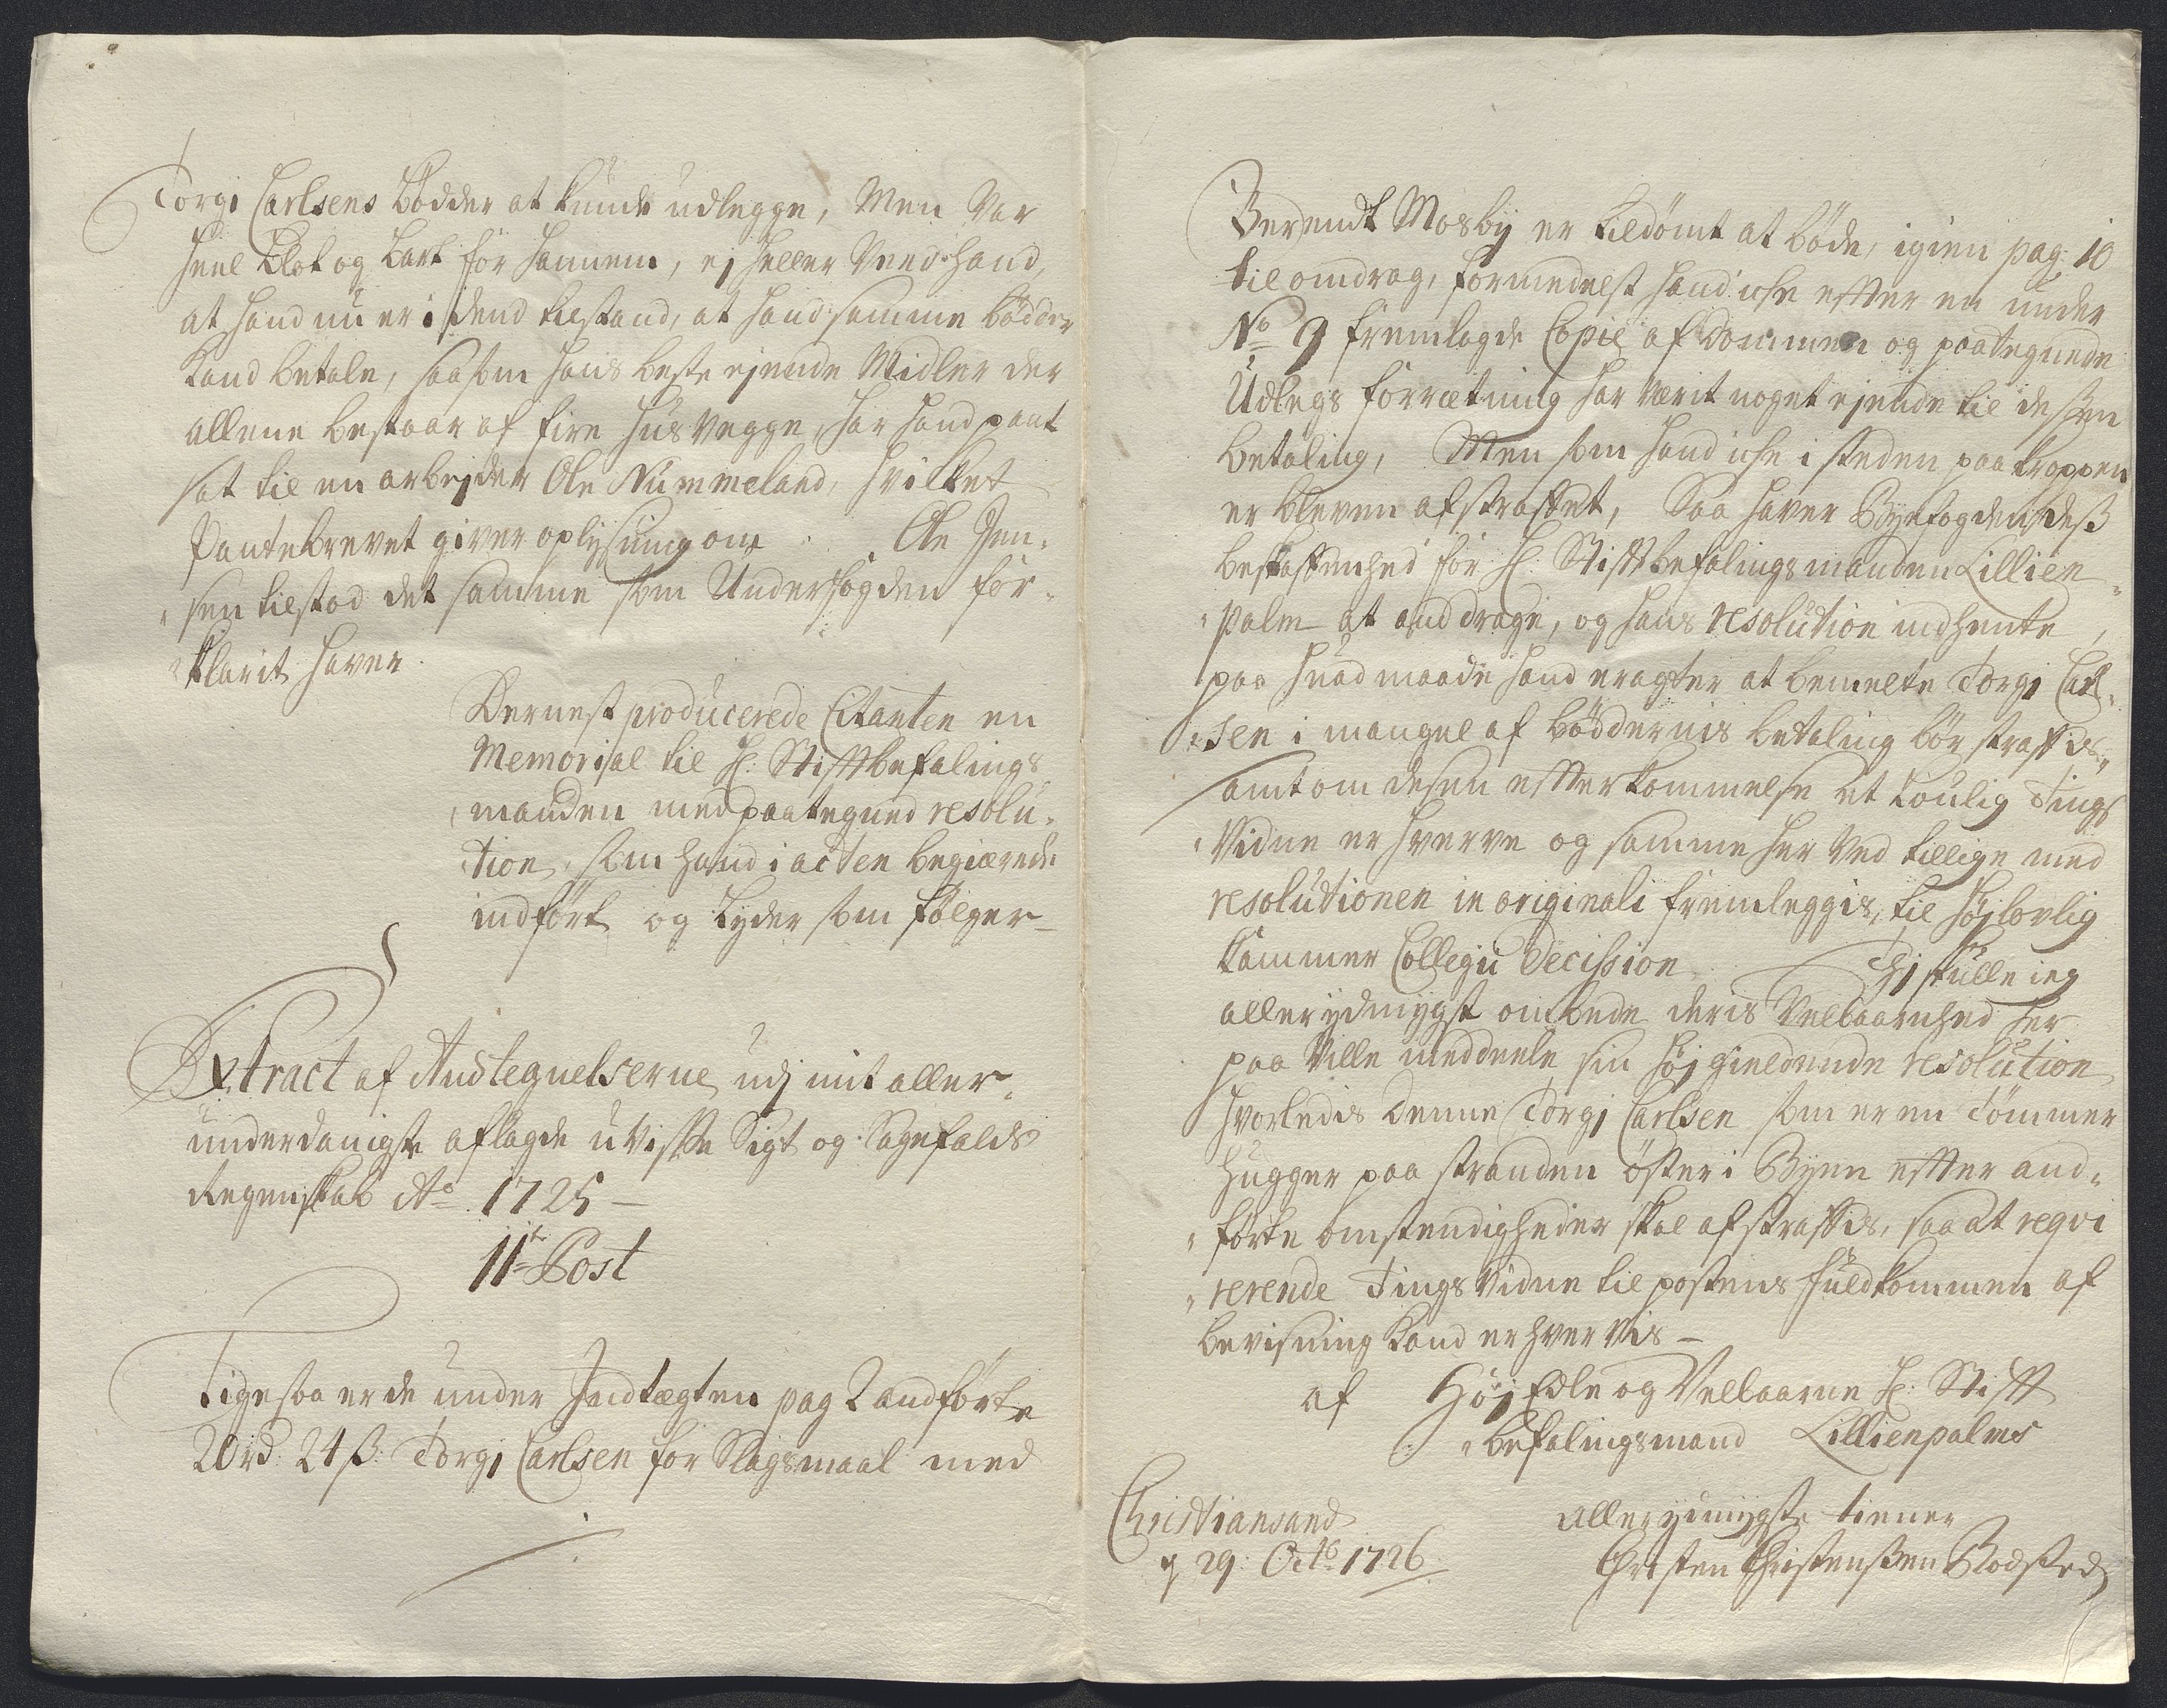 Torgi Carlsens bødder at kunde udlegge, Men Var
heel blot og bart for hannem, ej heller Veed hand,
at hand nu er i dend tilstand, at hand samme bødder
kand betale, saasom hans beste ejende Midler der
allene bestaar af fire huus vegge, har hand pant
sat til en arbejder Ole Nummeland, hvilket
Pantebrevet giver oplysning om Ole Jen-
sen tilstod det samme som Underfogden for-
klarit haver.
Dernest producerede Citanten en
Memorial til H: Stiftbefalings
manden med paategned resolu-
tion, som hand i acten begiærede
indført og Lyder som følger
Extract af Andtegnelserne udj mit aller-
underdanigste aflagde uvisse Sigt og Sagefalds
Regenskab Ao 1725
11te Post
Ligesaa er de under Indtægten pag 2 andførte
20rd. 24ß: Torgj Carlsen for Slagsmaal med
Berendt Mosby er tildømt at bøde, igien pag: 10
til omdrag, formedelst hand iche efter en under
No 9 fremlagde Copie af dommen og paategnede
Udlegs forrætning har værit noget ejende til dessen
betaling, Men som hand iche i steden paa kroppen
er bleven afstraffet, Saa haver Byefogden deß
beskaffenhed for H: Stiftbefalingsmanden Lillien-
palm at anddrage, og hans resolution indhente,
paa hvad maade hand eragter at bemelte Torgj Carl-
sen i mangel af bøddernis betaling bør straffis,
samt om desen efterkommelse et loulig Tings
Vidne erhverve og samme her ved tillige med
resolutionen in originali fremleggis, til høylovlig
Kammer Collegii Decission Thj skulle ieg
allerydmygst ombede deris Velbaarnhed her
paa Ville meddeele sin høj gieldende resolution
hvorledis denne Torgj Carlsen som er en Tømmer
hugger paa stranden øster i Byen efter and-
førte omstendigheder skal afstraffis, saa at reqvi
rerende Tings Vidne til postens fuldkommen af
bevisning kand erhvervis
af Høj Edle og Velbaarne H: Stift
befalingsmand Lillienpalms
Christiansand
d 29: Octb 1726
allerydmygste tiener
Christen Christenßen Rodsted